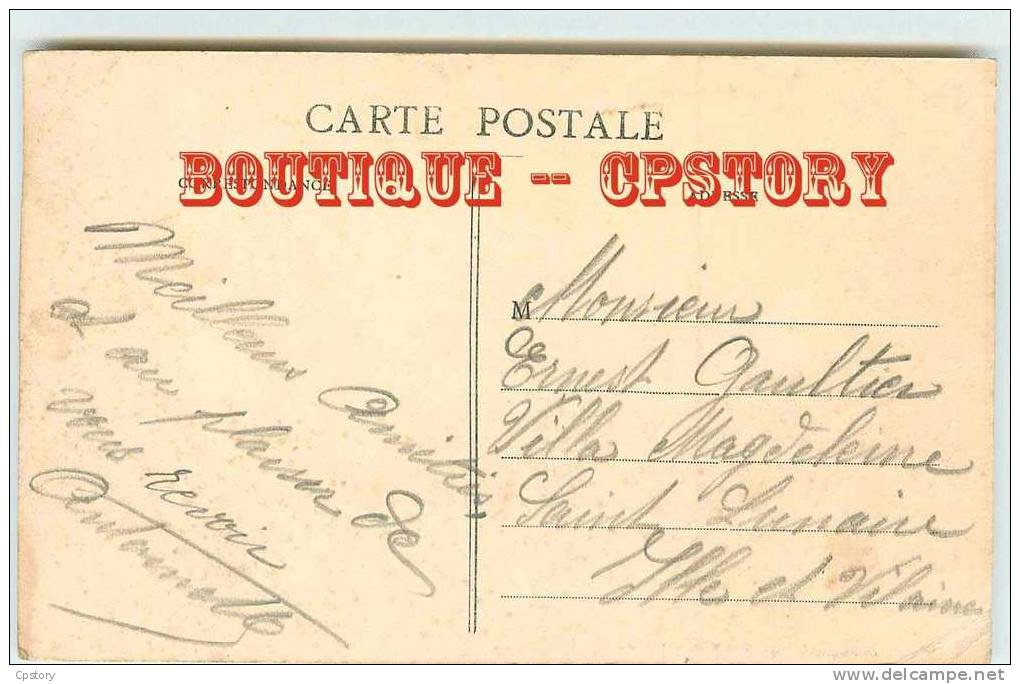 CARTE POSTALE
BOUTIQUE -- CPSTORY
CORRESPONDANCE
ADRESSE
Meilleurs Amitiés
et au plaisir de
vous revoir
Antoinette
M Monsieur
Ernest Gaultier
Villa Magdeleine
Saint Lunaire
Ille et Vilaine
Cpstory
www.delcampe.net